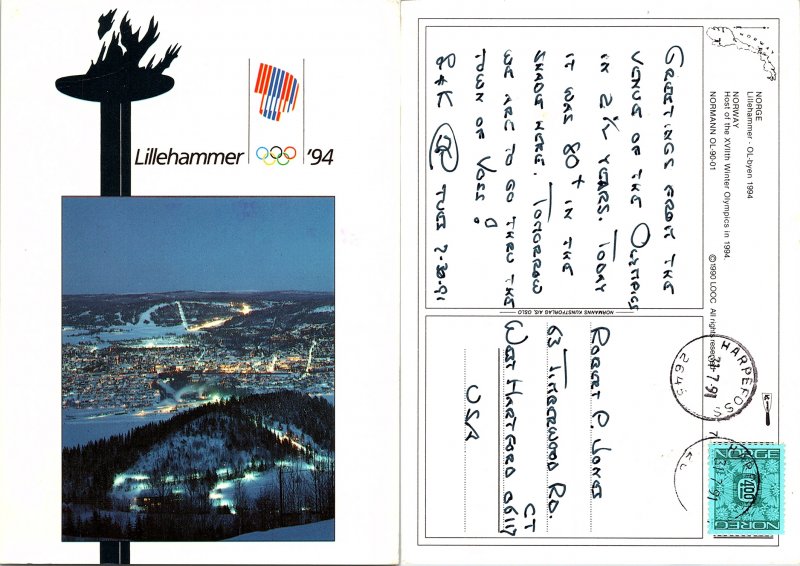 Lillehammer '94
NORGE
Lillehammer - OL-byen 1994
NORWAY
Host of the XVIIth Winter Olympics in 1994.
NORMANN OL-90-01
©1990 LOOC All rights reserved
NORWAY
GREETINGS FROM THE
VENUE OF THE OLYMPICS
IN 2½ YEARS. TODAY
IT WAS 80+ IN THE
SHADE HERE. TOMORROW
WE ARE TO GO THRU THE
TOWN OF VOSS!
B+K
TUES 7-30-91
NORMANNS KUNSTFORLAG A/S, OSLO
ROBERT P. JONES
63 TIMBERWOOD RD.
WEST HARTFORD 06117
CT
USA
HARPEFOSS
31.7.91
2645
HARPE
31.7.91
NORGE
400
NOREG